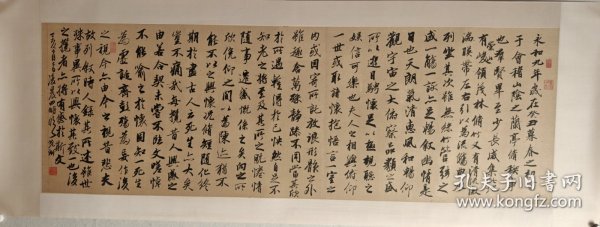 永和九年歲在癸丑暮春之初
于會稽山陰之蘭亭脩稧
也群賢畢至少長咸集
有峻領茂林脩竹又有清流
湍暎帶左右引以為流觴
列坐其次雖無絲竹管絃之
盛一觴一詠亦足暢敘幽情是
日也天朗氣清惠風和暢仰
觀宇宙之大俯察品類之盛
所以遊目騁懷足以極視聽之
娛信可樂也夫人之相與俯仰
一世或取諸懷抱悟言一室之
內或因寄所託放浪形骸之外
雖趣舍萬殊靜躁不同當其欣
於所遇暫得於己快然自足不
知老之將至及其所之既惓情
隨事遷感慨係之矣向之所
欣俛仰之間以為陳迹猶不
能不以之興懷況脩短隨化終
期於盡古人云死生亦大矣
豈不痛哉每攬昔人興感之
由若合一契未嘗不臨文嗟悼
不能喻之於懷固知一死生
為虛誕齊彭殤為妄作後
之視今亦由今之視昔悲夫
故列敘時人錄其所述雖世
殊事異所以興懷其致一也後
之攬者亦將有感於斯文
孔夫子旧书网
www.kongfz.com